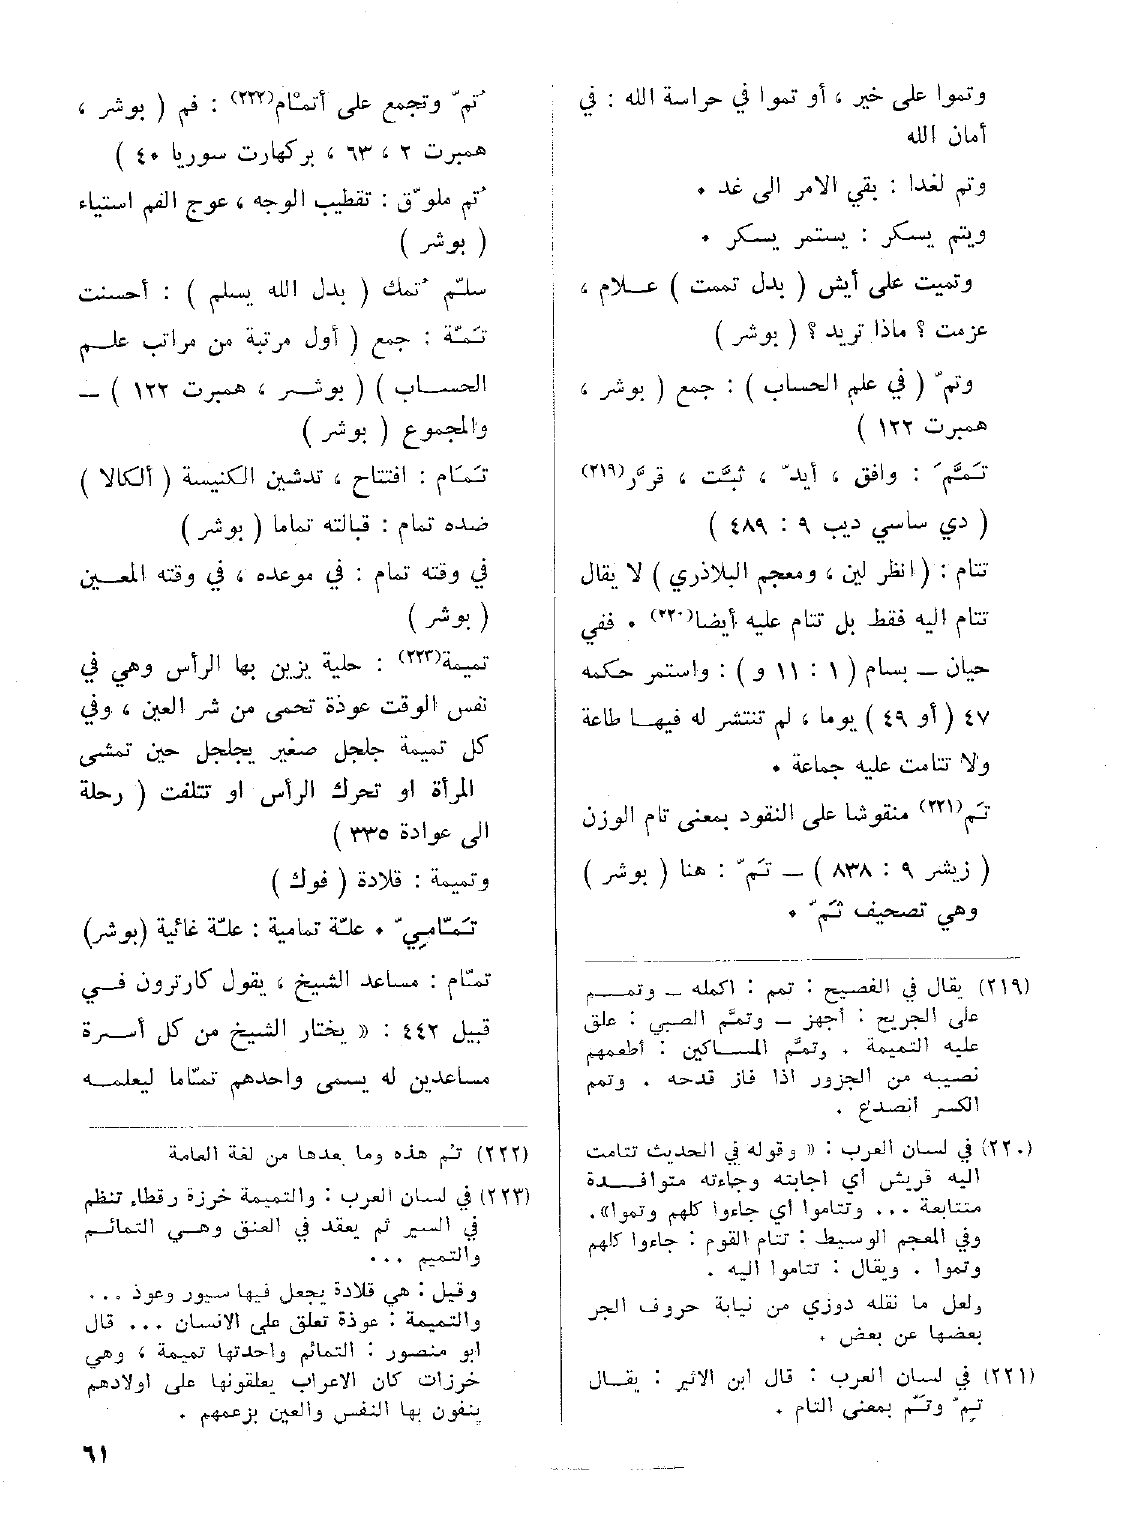 وتموا على خير ، أو تموا في حراسة الله : في
أمان الله
وتم لغدا : بقي الامر الى غد •
ويتم يسكر : يستمر يسكر •
وتميت على أيش ( بدل تممت ) عـلام ،
عزمت ؟ ماذا تريد ؟ ( بوشر )
وتمّ ( في علم الحساب ) : جمع ( بوشر ،
همبرت ١٢٢ )
تَمَّمَ : وافق ، أيدّ ، ثبَّت ، قرَّر(٢١٩)
( دي ساسي ديب ٩ : ٤٨٩ )
تتام : ( انظر لين ، ومعجم البلاذري ) لا يقال
تتام اليه فقط بل تتام عليه أيضا(٢٢٠) • ففي
حيان – بسام ( ١ : ١١ و ) : واستمر حكمه
٤٧ ( أو ٤٩ ) يوما ، لم تنتشر له فيهـا طاعة
ولا تتامت عليه جماعة •
تَم(٢٢١) منقوشا على النقود بمعنى تام الوزن
( زيشر ٩ : ٨٣٨ ) – تَمّ : هنا ( بوشر )
وهي تصحيف ثَمّ •
(٢١٩) يقال في الفصيح : تمم : اكمله – وتمـم
على الجريح : أجهز – وتمَّم الصبي : علق
عليه التميمة . وتمَّم المساكين : أطعمهم
نصيبه من الجزور اذا فاز قدحه . وتمم
الكسر انصدع .
(٢٢٠) في لسان العرب : « وقوله في الحديث تتامت
اليه قريش أي اجابته وجاءته متوافـدة
متتابعة ... وتتاموا اي جاءوا كلهم وتموا».
وفي المعجم الوسيط : تتام القوم : جاءوا كلهم
وتموا . ويقال : تتاموا اليه .
ولعل ما نقله دوزي من نيابة حروف الجر
بعضها عن بعض .
(٢٢١) في لسان العرب : قال ابن الاثير : يقـال
تِمّ وتَمّ بمعنى التام .
تُمّ وتجمع على أتمْام(٢٢٢) : فم ( بوشر ،
همبرت ٢ ، ٦٣ ، بركهارت سوريا ٤٠ )
تُم ملوّق : تقطيب الوجه ، عوج الفم استياء
( بوشر )
سلّم تُمك ( بدل الله يسلم ) : أحسنت
تَمّة : جمع ( أول مرتبة من مراتب علـم
الحساب ) ( بوشـر ، همبرت ١٢٢ ) –
والمجموع ( بوشر )
تَمَام : افتتاح ، تدشين الكنيسة ( ألكالا )
ضده تمام : قبالته تماما ( بوشر )
في وقته تمام : في موعده ، في وقته المعـين
( بوشر )
تميمة(٢٢٣) : حلية يزين بها الرأس وهي في
نفس الوقت عوذة تحمى من شر العين ، وفي
كل تميمة جلجل صغير يجلجل حين تمشى
المرأة او تحرك الرأس او تتلفت ( رحلة
الى عوادة ٣٣٥ )
وتميمة : قلادة ( فوك )
تَمّامِيّ • علّة تمامية : علّة غائية (بوشر)
تمّام : مساعد الشيخ ، يقول كارترون فـي
قبيل ٤٤٢ : « يختار الشيخ من كل أسـرة
مساعدين له يسمى واحدهم تمّاما ليعلمـه
(٢٢٢) تُم هذه وما بعدها من لغة العامة
(٢٢٣) في لسان العرب : والتميمة خرزة رقطاء تنظم
في السير ثم يعقد في العنق وهـي التمائـم
والتميم ...
وقيل : هي قلادة يجعل فيها سيور وعوذ ...
والتميمة : عوذة تعلق على الانسان ... قال
ابو منصور : التمائم واحدتها تميمة ، وهي
خرزات كان الاعراب يعلقونها على اولادهم
ينفون بها النفس والعين بزعمهم .
٦١